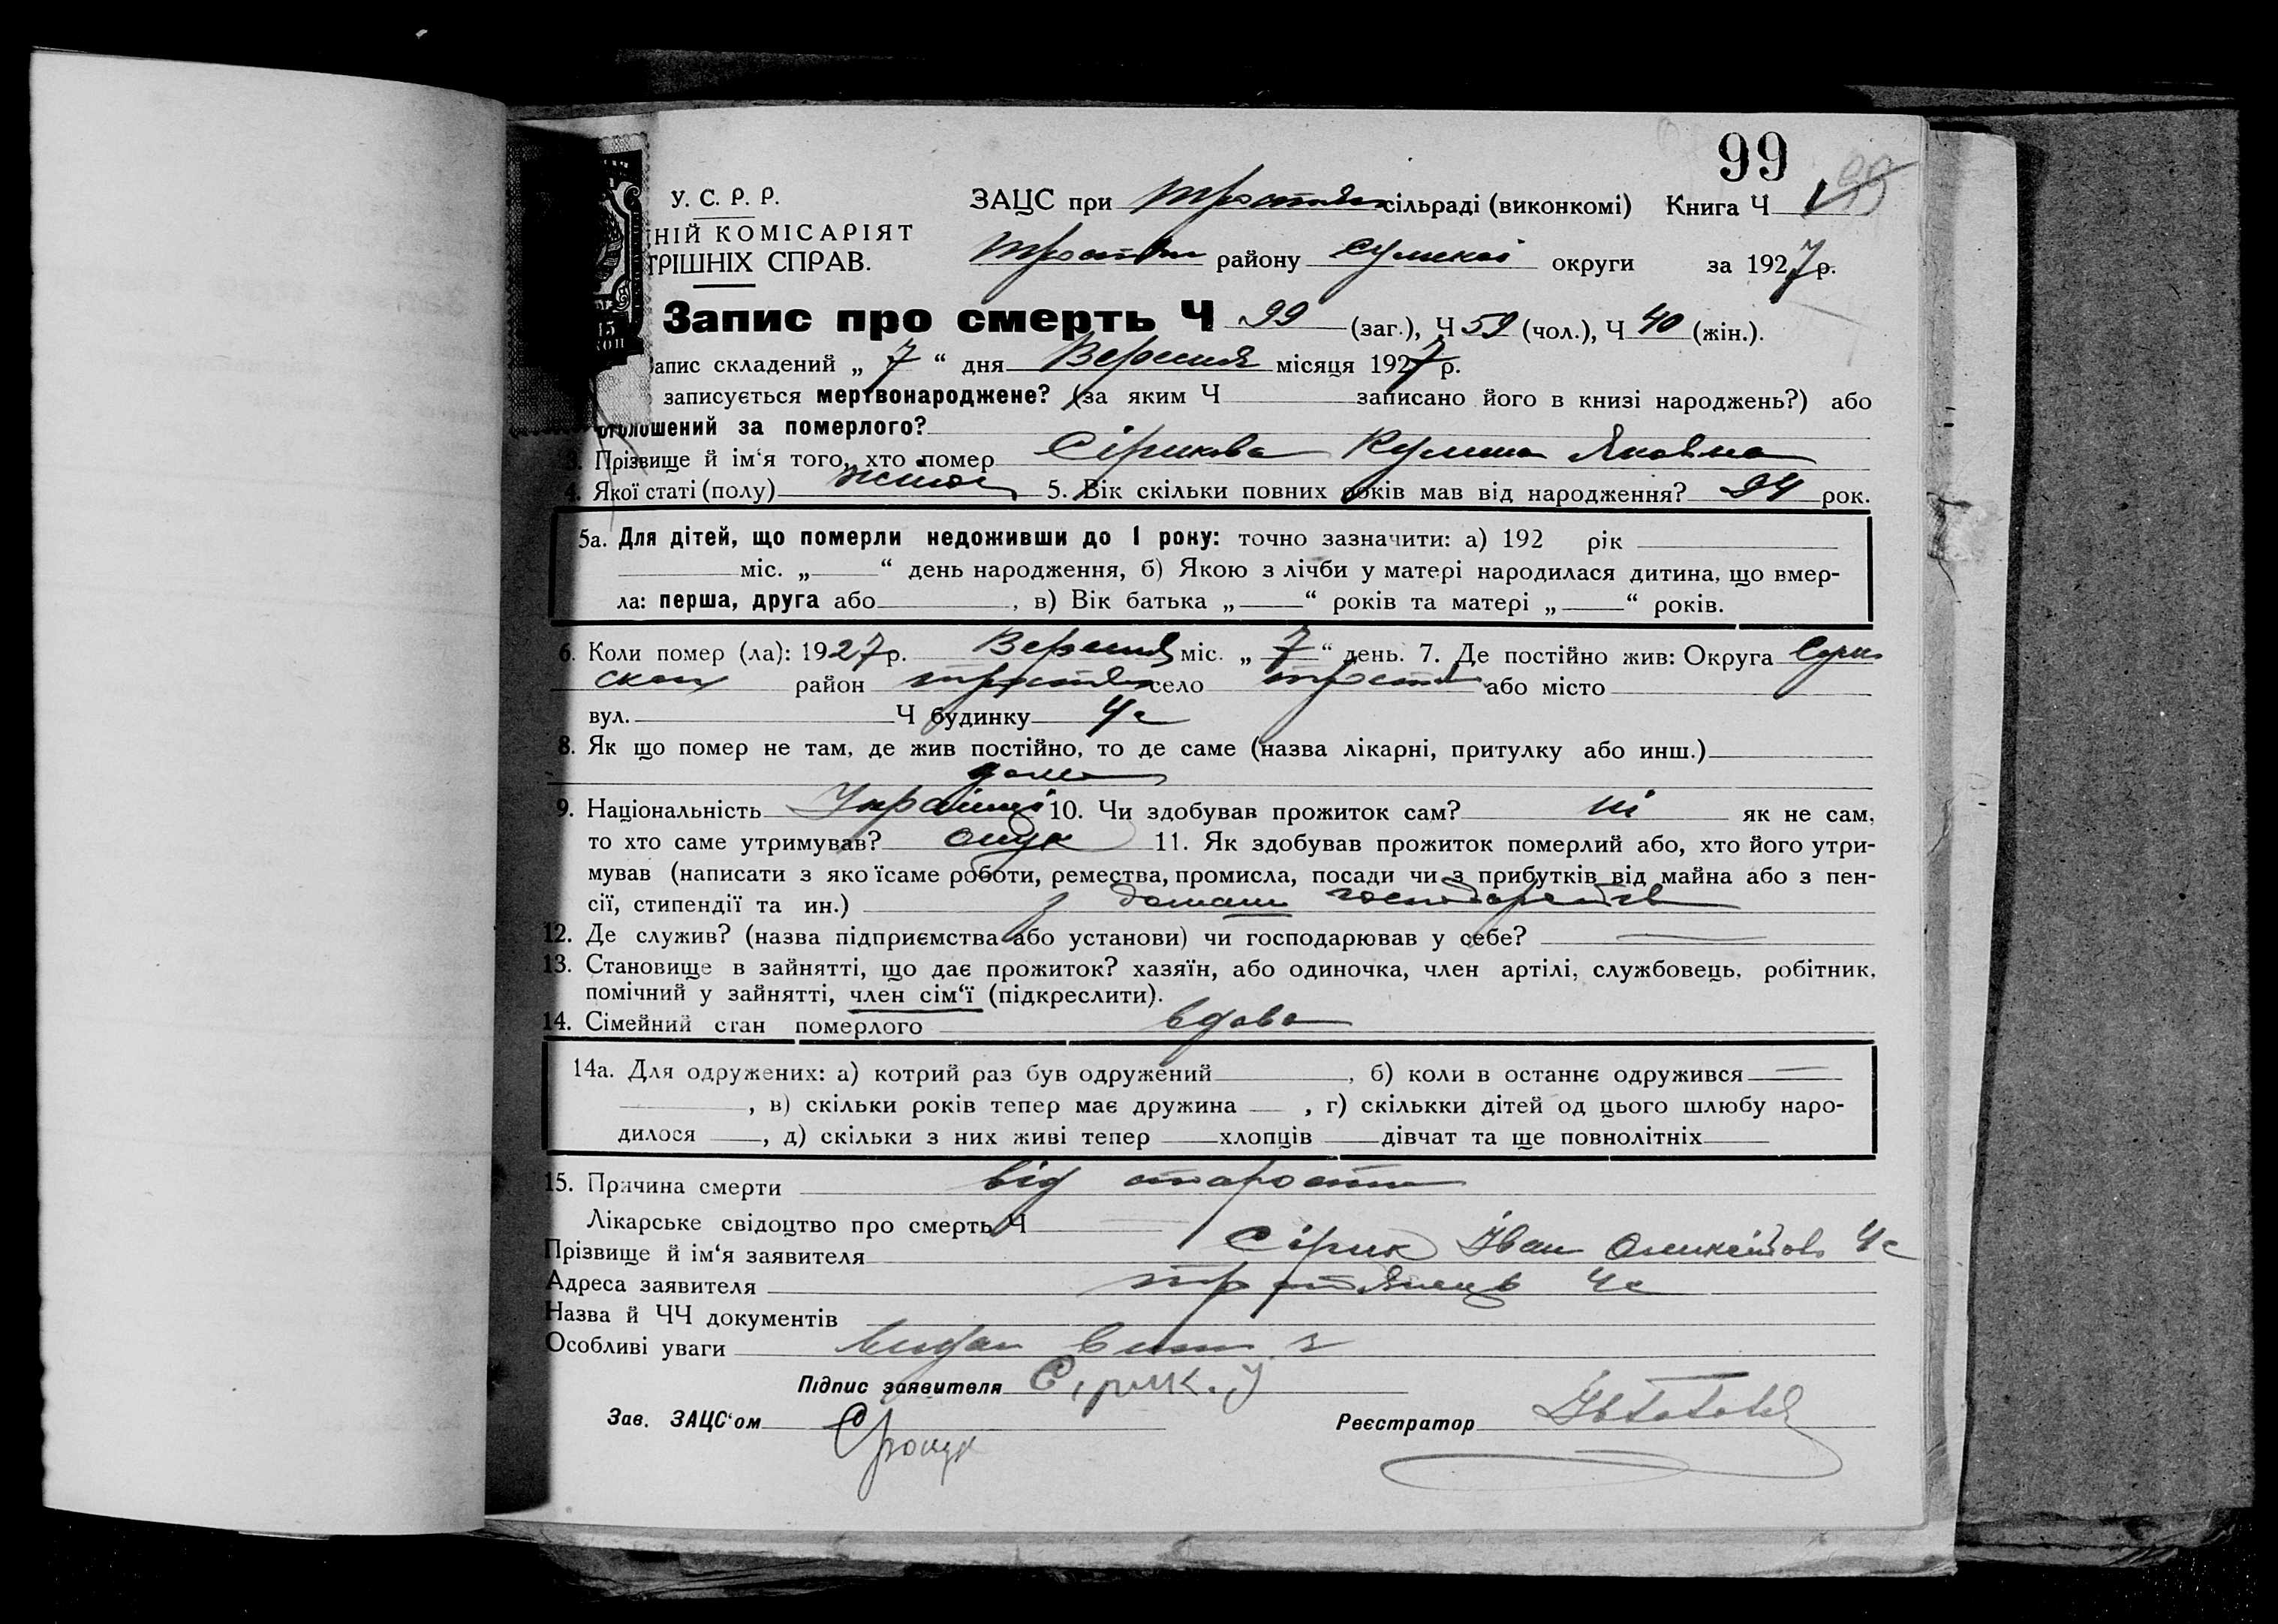 99
У. С. Р. Р.
ЗАЦС при Тростян сільраді (виконкомі) Книга Ч 1
НІЙ КОМІСАРІЯТ
ТРІШНІХ СПРАВ.
Тростян району Сумської округи за 1927 р.
Запис про смерть Ч 99 (заг.), Ч 59 (чол.), Ч 40 (жін.).
апис складений „ 7 “ дня Вересня місяця 1927 р.
записується мертвонароджене? (за яким Ч записано його в книзі народжень?) або
оголошений за померлого?
3. Прізвище й ім‘я того, хто помер Сірикова Кулина Яковна
4. Якої статі (полу) жіноч 5. Вік скільки повних років мав від народження? 94 рок.
5а. Для дітей, що померли недоживши до 1 року: точно зазначити: а) 192 рік
міс. „ “ день народження, б) Якою з лічби у матері народилася дитина, що вмер-
ла: перша, друга або , в) Вік батька „ “ років та матері „ “ років.
6. Коли помер (ла): 1927 р. Вересня міс. „ 7 “ день. 7. Де постійно жив: Округа Сум
ська район Тростян село Тростян або місто
вул. Ч будинку
8. Як що помер не там, де жив постійно, то де саме (назва лікарні, притулку або инш.)
дома
9. Національність 10. Чи здобував прожиток сам? ні як не сам,
то хто саме утримував? онук 11. Як здобував прожиток померлий або, хто його утри-
мував (написати з яко їсаме роботи, ремества, промисла, посади чи з прибутків від майна або з пен-
сії, стипендії та ин.) з домашн господарства
12. Де служив? (назва підприємства або установи) чи господарював у себе?
13. Становище в зайнятті, що дає прожиток? хазяїн, або одиночка, член артілі, службовець, робітник,
помічний у зайнятті, член сім‘ї (підкреслити).
14. Сімейний стан померлого вдова
14а. Для одружених: а) котрий раз був одружений , б) коли в останнє одружився
, в) скільки років тепер має дружина , г) скількки дітей од цього шлюбу наро-
дилося , д) скільки з них живі тепер хлопців дівчат та ще повнолітніх
15. Причина смерти від старости
Лікарське свідоцтво про смерть Ч
Прізвище й ім‘я заявителя Сірик Іван
Адреса заявителя Тростянець
Назва й ЧЧ документів
Особливі уваги
Підпис заявителя Сірик. І
Зав. ЗАЦС‘ом
Реєстратор